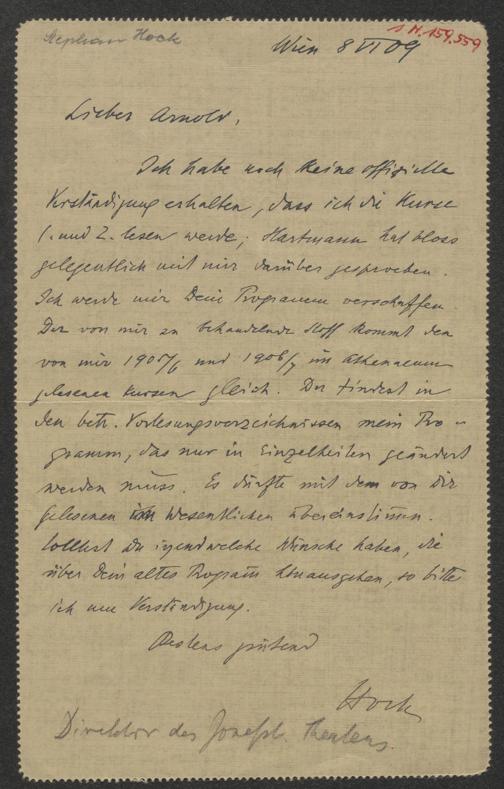 Stephan Hock
1 N. 159.559
Wien 8 VI 09
Lieber Arnold,
Ich habe noch keine offizielle
Verständigung erhalten, dass ich die Kurse
1. und 2. lesen werde; Hartmann hat bloss
gelegentlich mit mir darüber gesprochen.
Ich werde mir Dein Programm verschaffen.
Der von mir zu behandelnde Stoff kommt den
von mir 1905/6 und 1906/7 im Athenaeum
gelesenen Kursen gleich. Du findest in
den betr. Vorlesungsverzeichnissen mein Pro-
gramm, das nur in Einzelheiten geändert
werden muss. Es dürfte mit dem von Dir
gelesenen im Wesentlichen übereinstimm.
Solltest Du irgendwelche Wünsche haben, die
über Dein altes Program hinausgehen, so bitte
ich um Verständigung.
Bestens grüßend
Hock
Direktor des Josefst. Theaters.